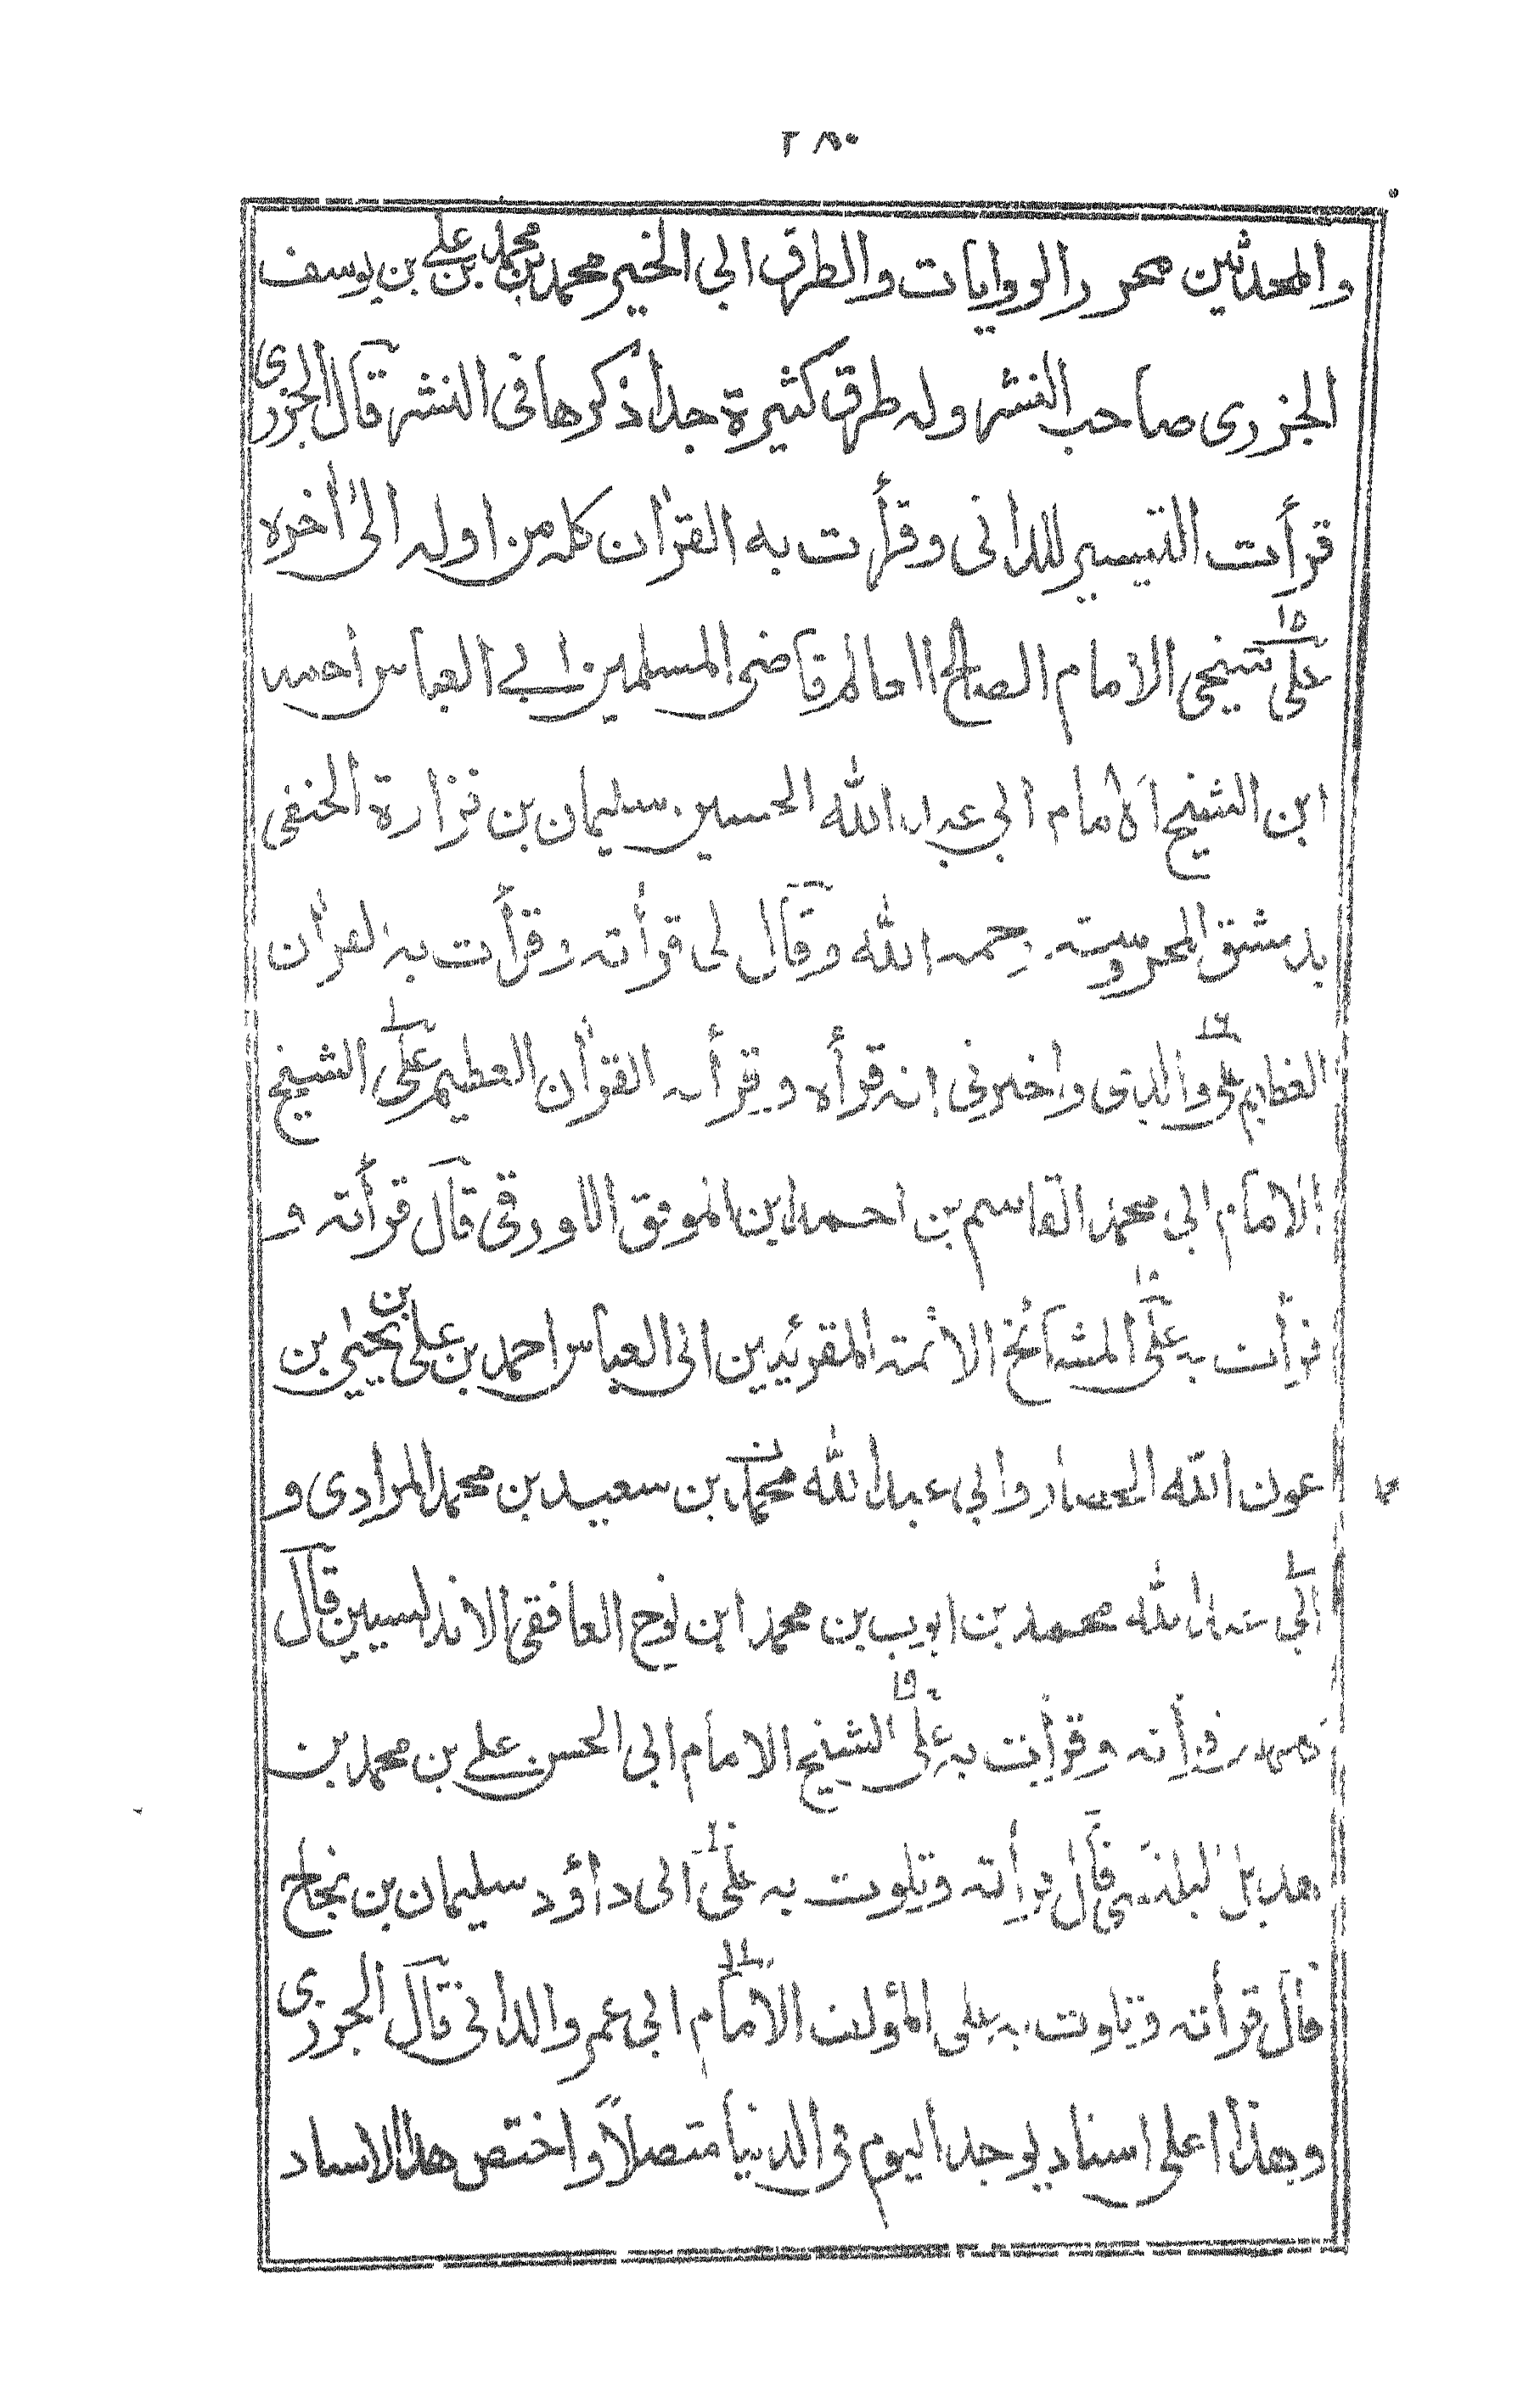 ٢٨٠
والمحدثين محرر الروايات والطرق ابي الخير محمد بن محمد بن علي بن يوسف
الجزري صاحب النشر وله طرق كثيرة جدا ذكرها في النشر قال الجزري
قرأت التيسير للداني وقرأت به القرآن كله من اوله الى آخره
١٥
على شيخي الامام الصالح العالم قاضي المسلمين ابي العباس احمد
ابن الشيخ الامام ابي عبد الله الحسين بن سليمان بن فزارة الحنفي
بدمشق المحروسة رحمه الله وقال لي قرأته وقرأت به القرآن
١٦
العظيم على والدي واخبرني انه قرأه وقرأ به القرآن العظيم على الشيخ
الامام ابي محمد القاسم بن احمد بن الموفق اللورقي قال قرأته و
١٨
قرأت به على المشائخ الائمة المقرئين ابي العباس احمد بن علي بن يحيى بن
عون الله الحصار وابي عبد الله محمد بن سعيد بن محمد المرادي و
ابي عبد الله محمد بن ايوب بن محمد ابن نوح الغافقي الاندلسيين قال
١٩
قرأته وقرأت به على الشيخ الامام ابي الحسن علي بن محمد بن
هذيل البلنسي قال قرأته وتلوت به على ابي داؤد سليمان بن نجاح
قال قرأته وتلوت به على المؤلف الامام ابي عمرو الداني قال الجزري
وهذا اعلى اسناد يوجد اليوم في الدنيا متصلاً واختص هذا الاسناد